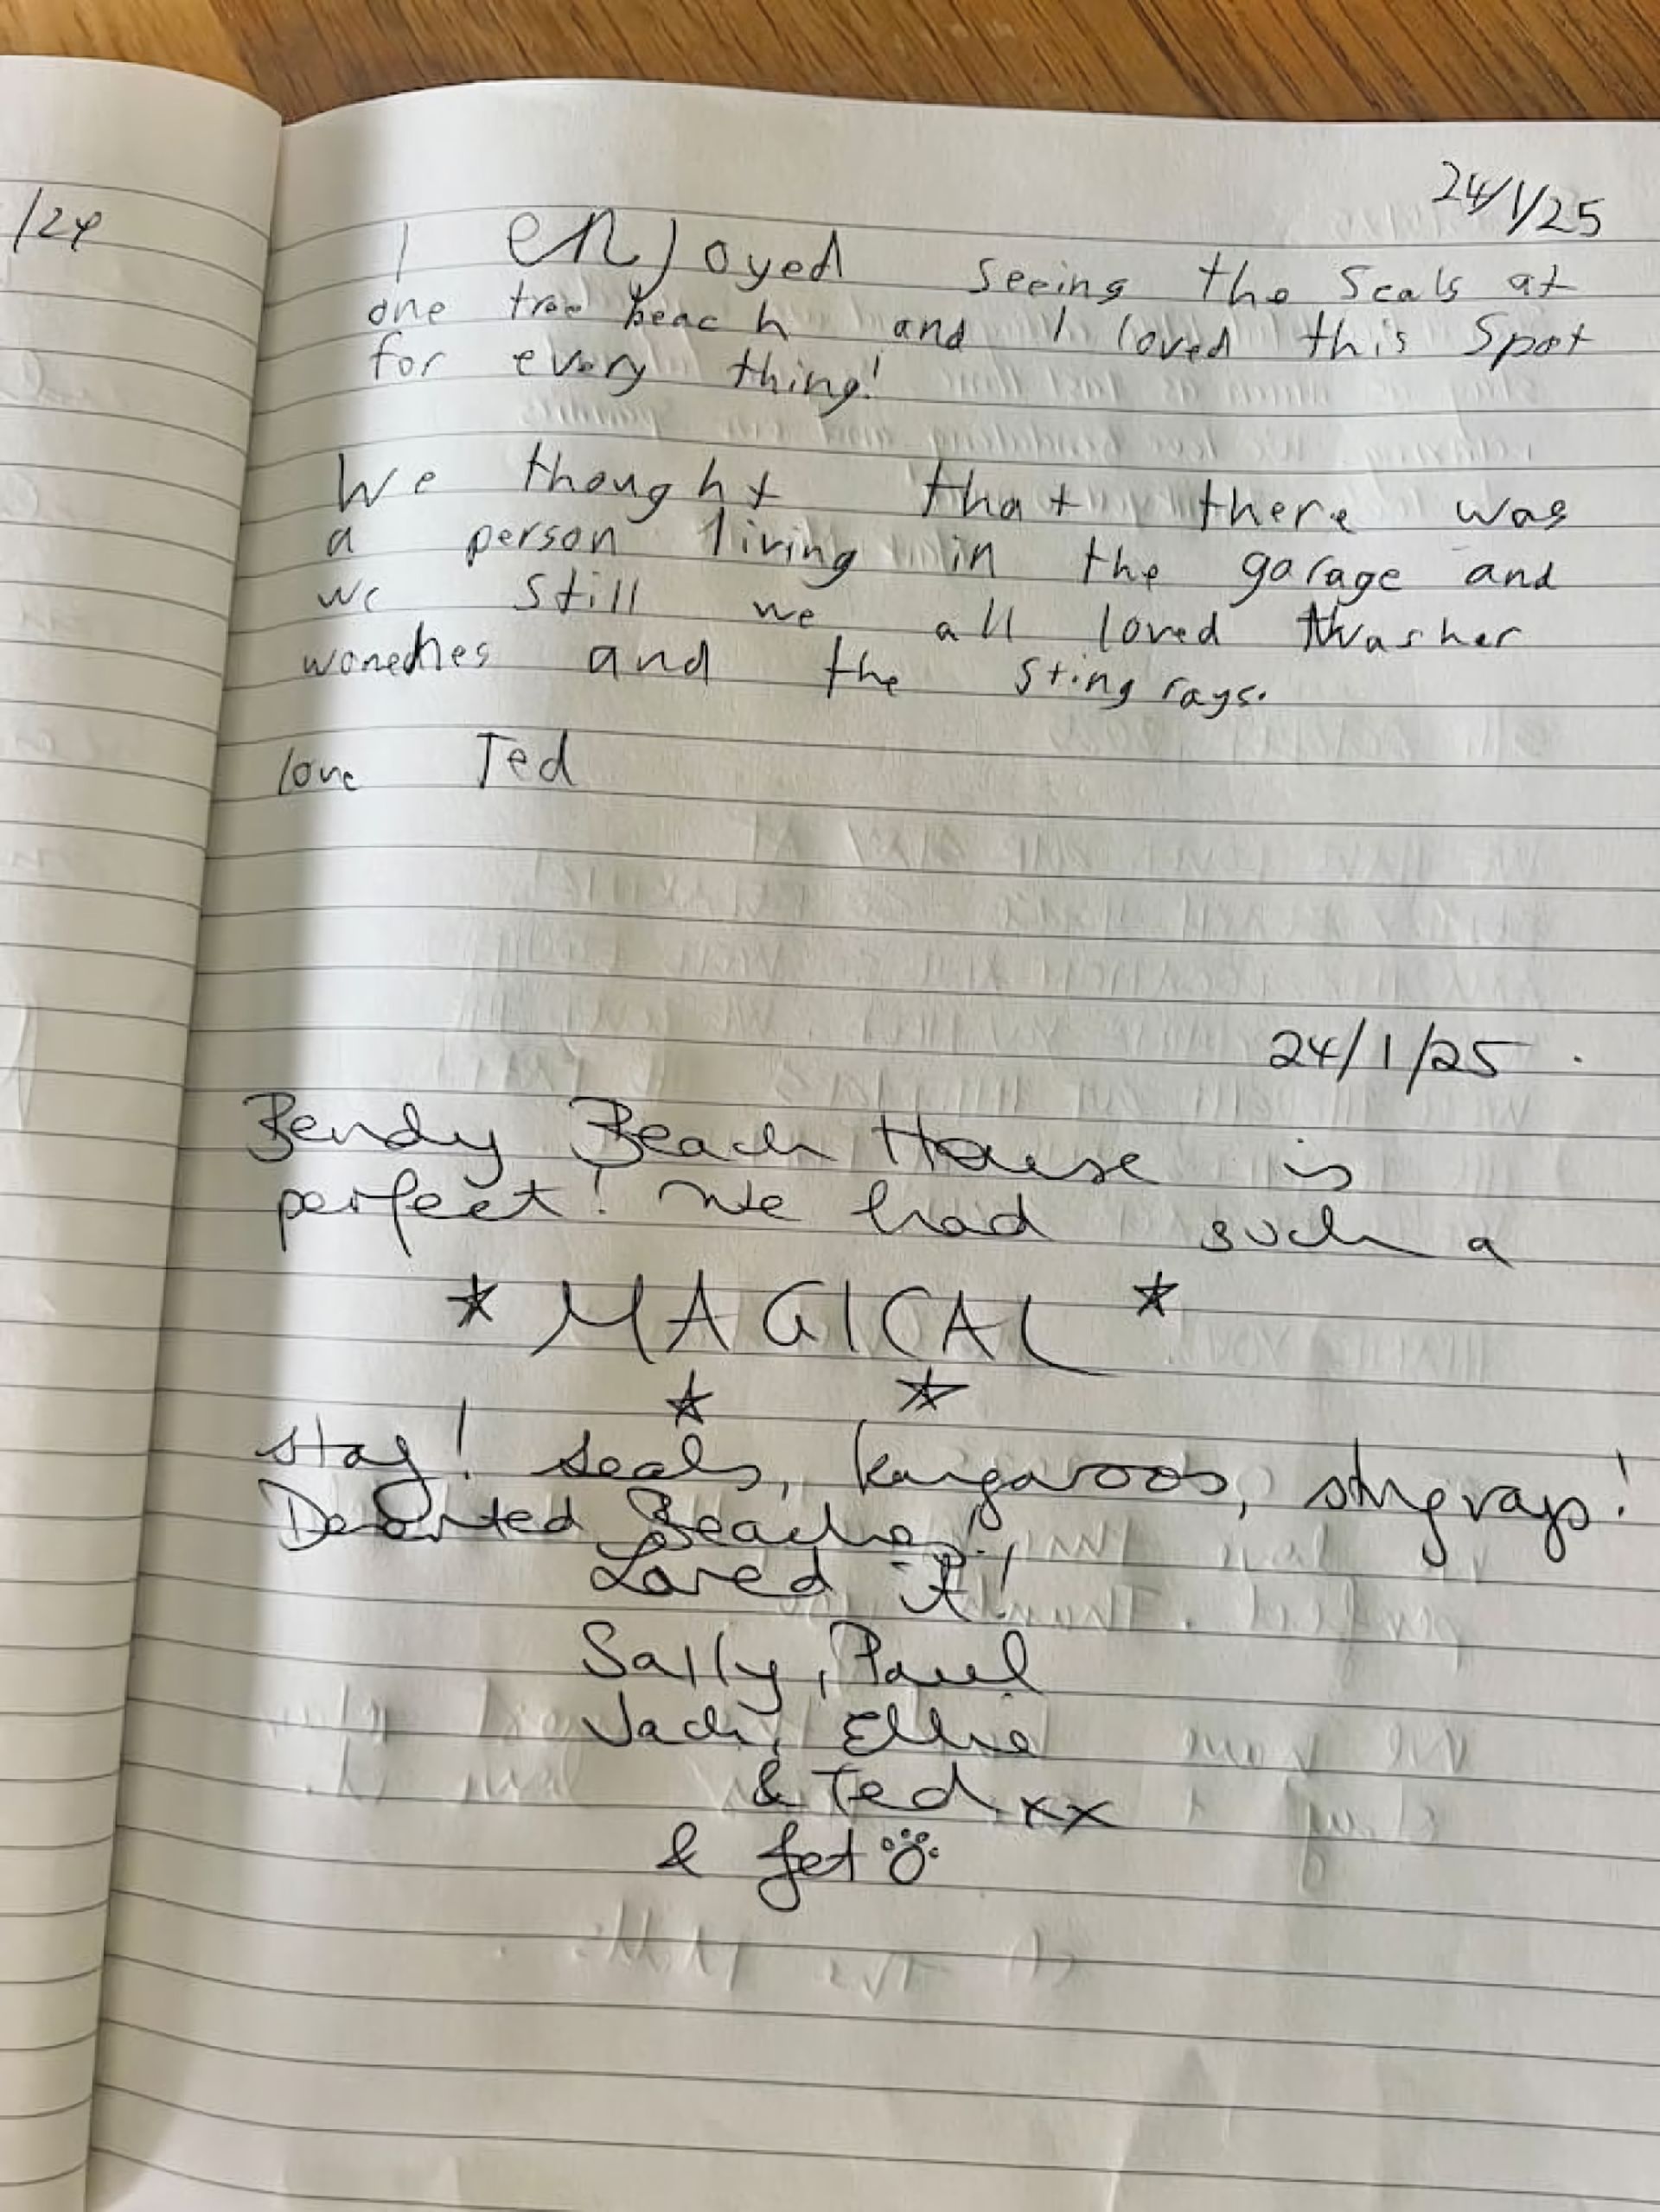 /24
24/1/25
I enjoyed seeing the seals at
one tree beach and I loved this spot
for every thing!
We thought that there was
a person living in the garage and
we still we all loved
and the sting rays.
love Ted
24/1/25
Bendy Beach House is
perfect! We had such a
* MAGICAL *
* *
stay! Seals, kangaroos, stingrays!
Deserted Beaches!
Loved it!
Sally, Paul
Jack, Ellie
& Ted xx
& Jet